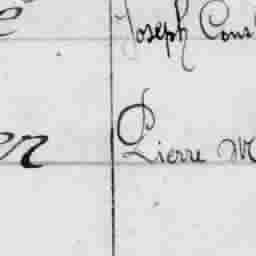 e Joseph Cons
er Pierre M